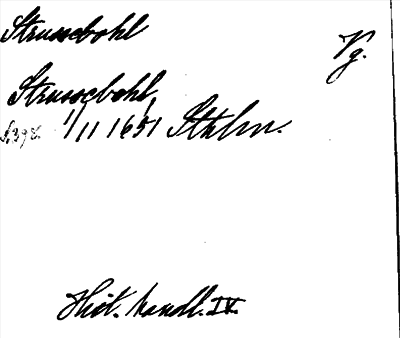 Strussebohl
Vg.
Strussebohl,
S. 398. 1/11 1651 Sthlm.
Hist. handl. IV.